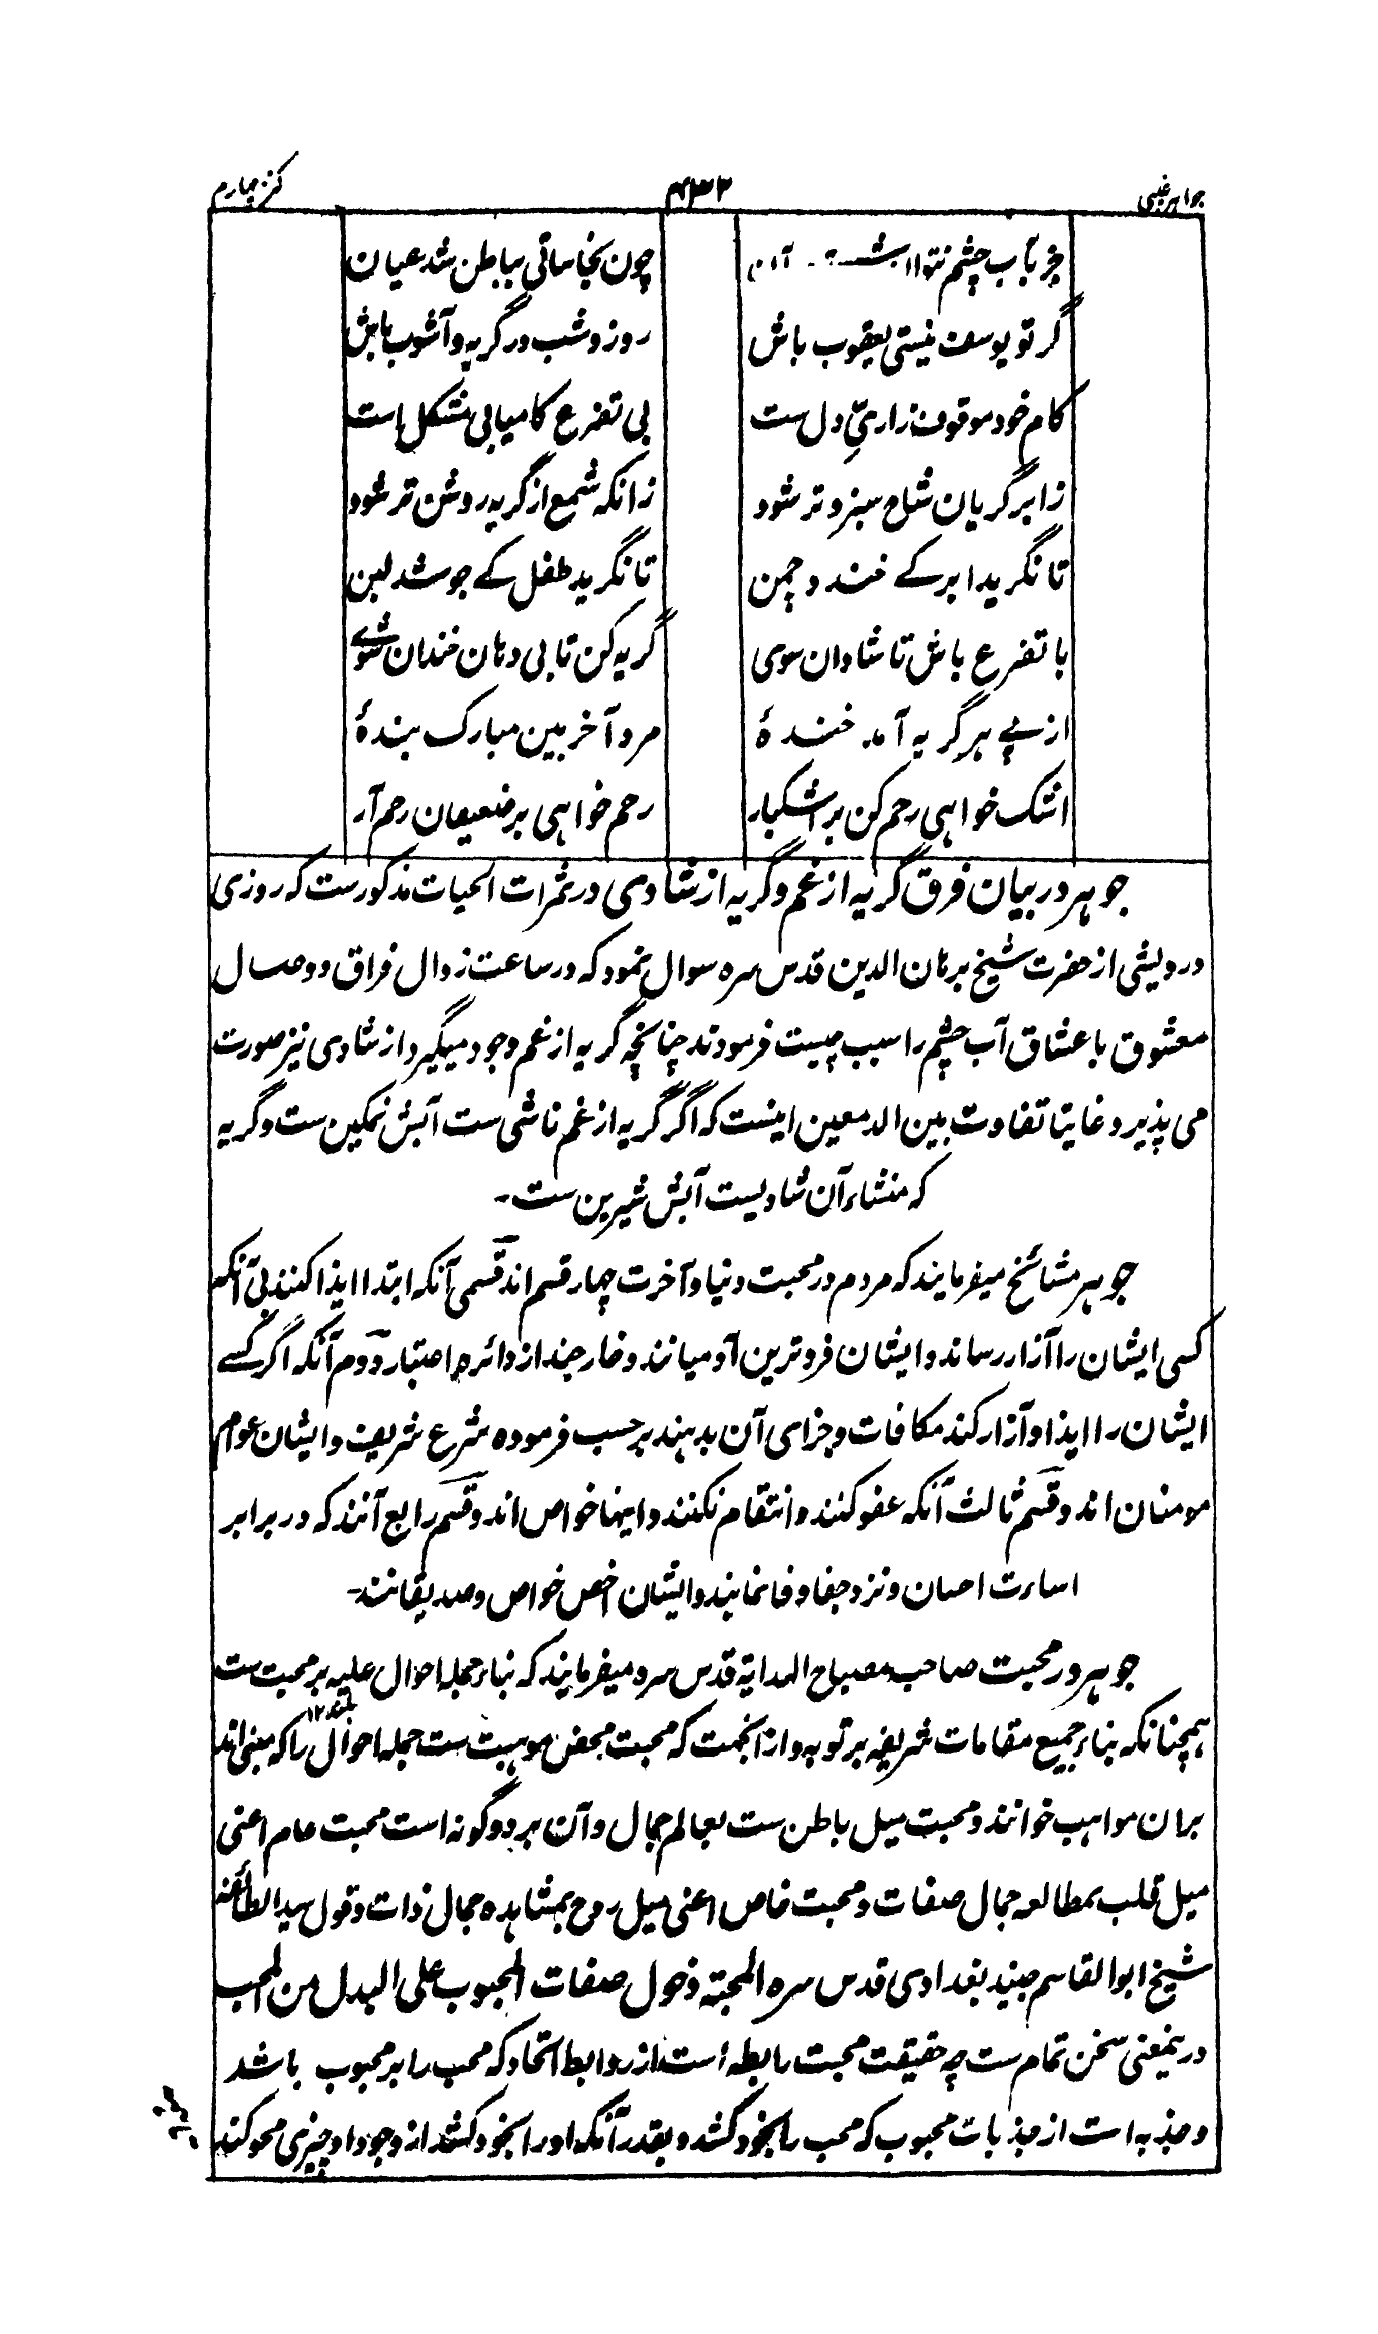 جواهر غیبی ۴۳۲ کنز چهارم
جز بآب چشم نتوان شست آن چون نجاساتی بباطن شد عیان
گر تو یوسف نیستی یعقوب باش روز و شب در گریه و آشوب باش
کام خود موقوف زاریّ دل ست بی تضرع کامیابی مشکل است
ز ابر گریان شاخ سبز و تر شود زانکه شمع از گریه روشن تر شود
تا نگرید ابر کے خندد چمن تا نگرید طفل کے جوشد لبن
با تضرع باش تا شادان شوی گریه کن تا بی دهان خندان شوے
از پے هر گریه آمد خندۀ مرد آخر بین مبارک بندۀ
اشک خواهی رحم کن بر اشکبار رحم خواهی بر ضعیفان رحم آر
جوهر در بیان فرق گریه از غم و گریه از شادی در ثمرات الحیات مذکورست که روزی
درویشی از حضرت شیخ برهان الدین قدس سره سوال نمود که در ساعت زوال فراق و وصال
معشوق با عشاق آب چشم را سبب چیست فرمودند چنانچه گریه از غم وجود میگیرد از شادی نیز صورت
می پذیرد غایتا تفاوت بین الدمعین اینست که اگر گریه از غم ناشی ست آبش نمکین ست و گریه
که منشاء آن شادیست آبش شیرین ست۔
جوهر مشائخ میفرمایند که مردم در محبت دنیا و آخرت چهار قسم اند قسمی آنکه ابتدا ایذا کنند بی آنکه
کسی ایشان را آزار رساند و ایشان فروترین آدمیانند و خارجند از دائره اعتبار دوم آنکه اگر کسے
ایشان را ایذا و آزار کند مکافات و جزای آن بدهند بر حسب فرموده شرع شریف و ایشان عوام
مومنان اند و قسم ثالث آنکه عفو کنند و انتقام نکنند و اینها خواص اند و قسم رابع آنند که در برابر
اساءت احسان و نزد جفا وفا نمایند و ایشان اخص خواص و صدیقانند۔
جوهر در محبت صاحب مصباح الهدایة قدس سره میفرمایند که بناء جمله احوال علیه بر محبت ست
همچنانکه بناء جمیع مقامات شریفه بر توبه و از آنجهت که محبت محض موهبت ست جمله احوال را که مبنی اند
بلند ۱۲
بران مواهب خوانند و محبت میل باطن ست بعالم جمال و آن بر دو گونه است محبت عام اعنی
میل قلب بمطالعه جمال صفات و محبت خاص اعنی میل روح بمشاهده جمال ذات و قول سید الطائفه
شیخ ابوالقاسم جنید بغدادی قدس سره المحبة دخول صفات المحبوب علی البدل من المحب
درینمعنی سخن تمام ست چه حقیقت محبت رابطه است از روابط اتحاد که محب را بر محبوب باشد
و جذبه است از جذبات محبوب که محب را بخود کشد و بقدر آنکه او را بخود کشد از وجود او چیزی محو کند